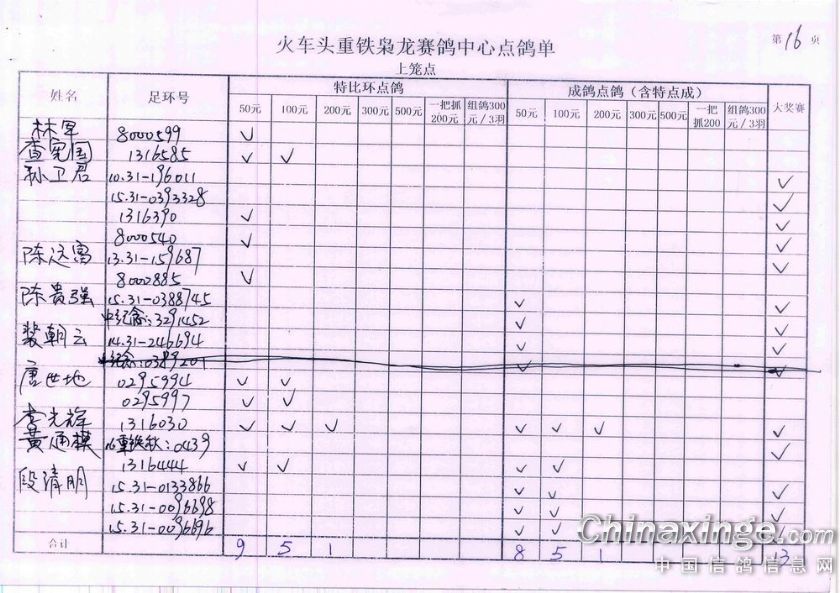 第16页
火车头重铁枭龙赛鸽中心点鸽单
上笼点
姓名 足环号 特比环点鸽 成鸽点鸽（含特点成） 大奖赛
50元 100元 200元 300元 500元 一把抓200元 组鸽300元/3羽 50元 100元 200元 300元 500元 一把抓200 组鸽300元/3羽
林军 8000599 ✓
查宪国 1316585 ✓ ✓
孙卫君 10.31-196011 ✓
15.31-0393328 ✓
1316390 ✓ ✓
8000540 ✓ ✓
陈远富 13.31-159687 ✓
8000885 ✓
陈贵强 15.31-0388745 ✓ ✓
中纪念:3291452 ✓ ✓
裴朝云 14.31-246694 ✓ ✓
唐世地 0295994 ✓ ✓
0295997 ✓ ✓
李光辉 1316030 ✓ ✓ ✓ ✓ ✓ ✓ ✓
黄通模 :0439 ✓
1316444 ✓ ✓ ✓ ✓
段清明 15.31-0133866 ✓ ✓ ✓
15.31-0096698 ✓ ✓ ✓
15.31-0096696 ✓ ✓
合计 9 5 1 8 5 1 13
Chinaxinge.com
中国信鸽信息网